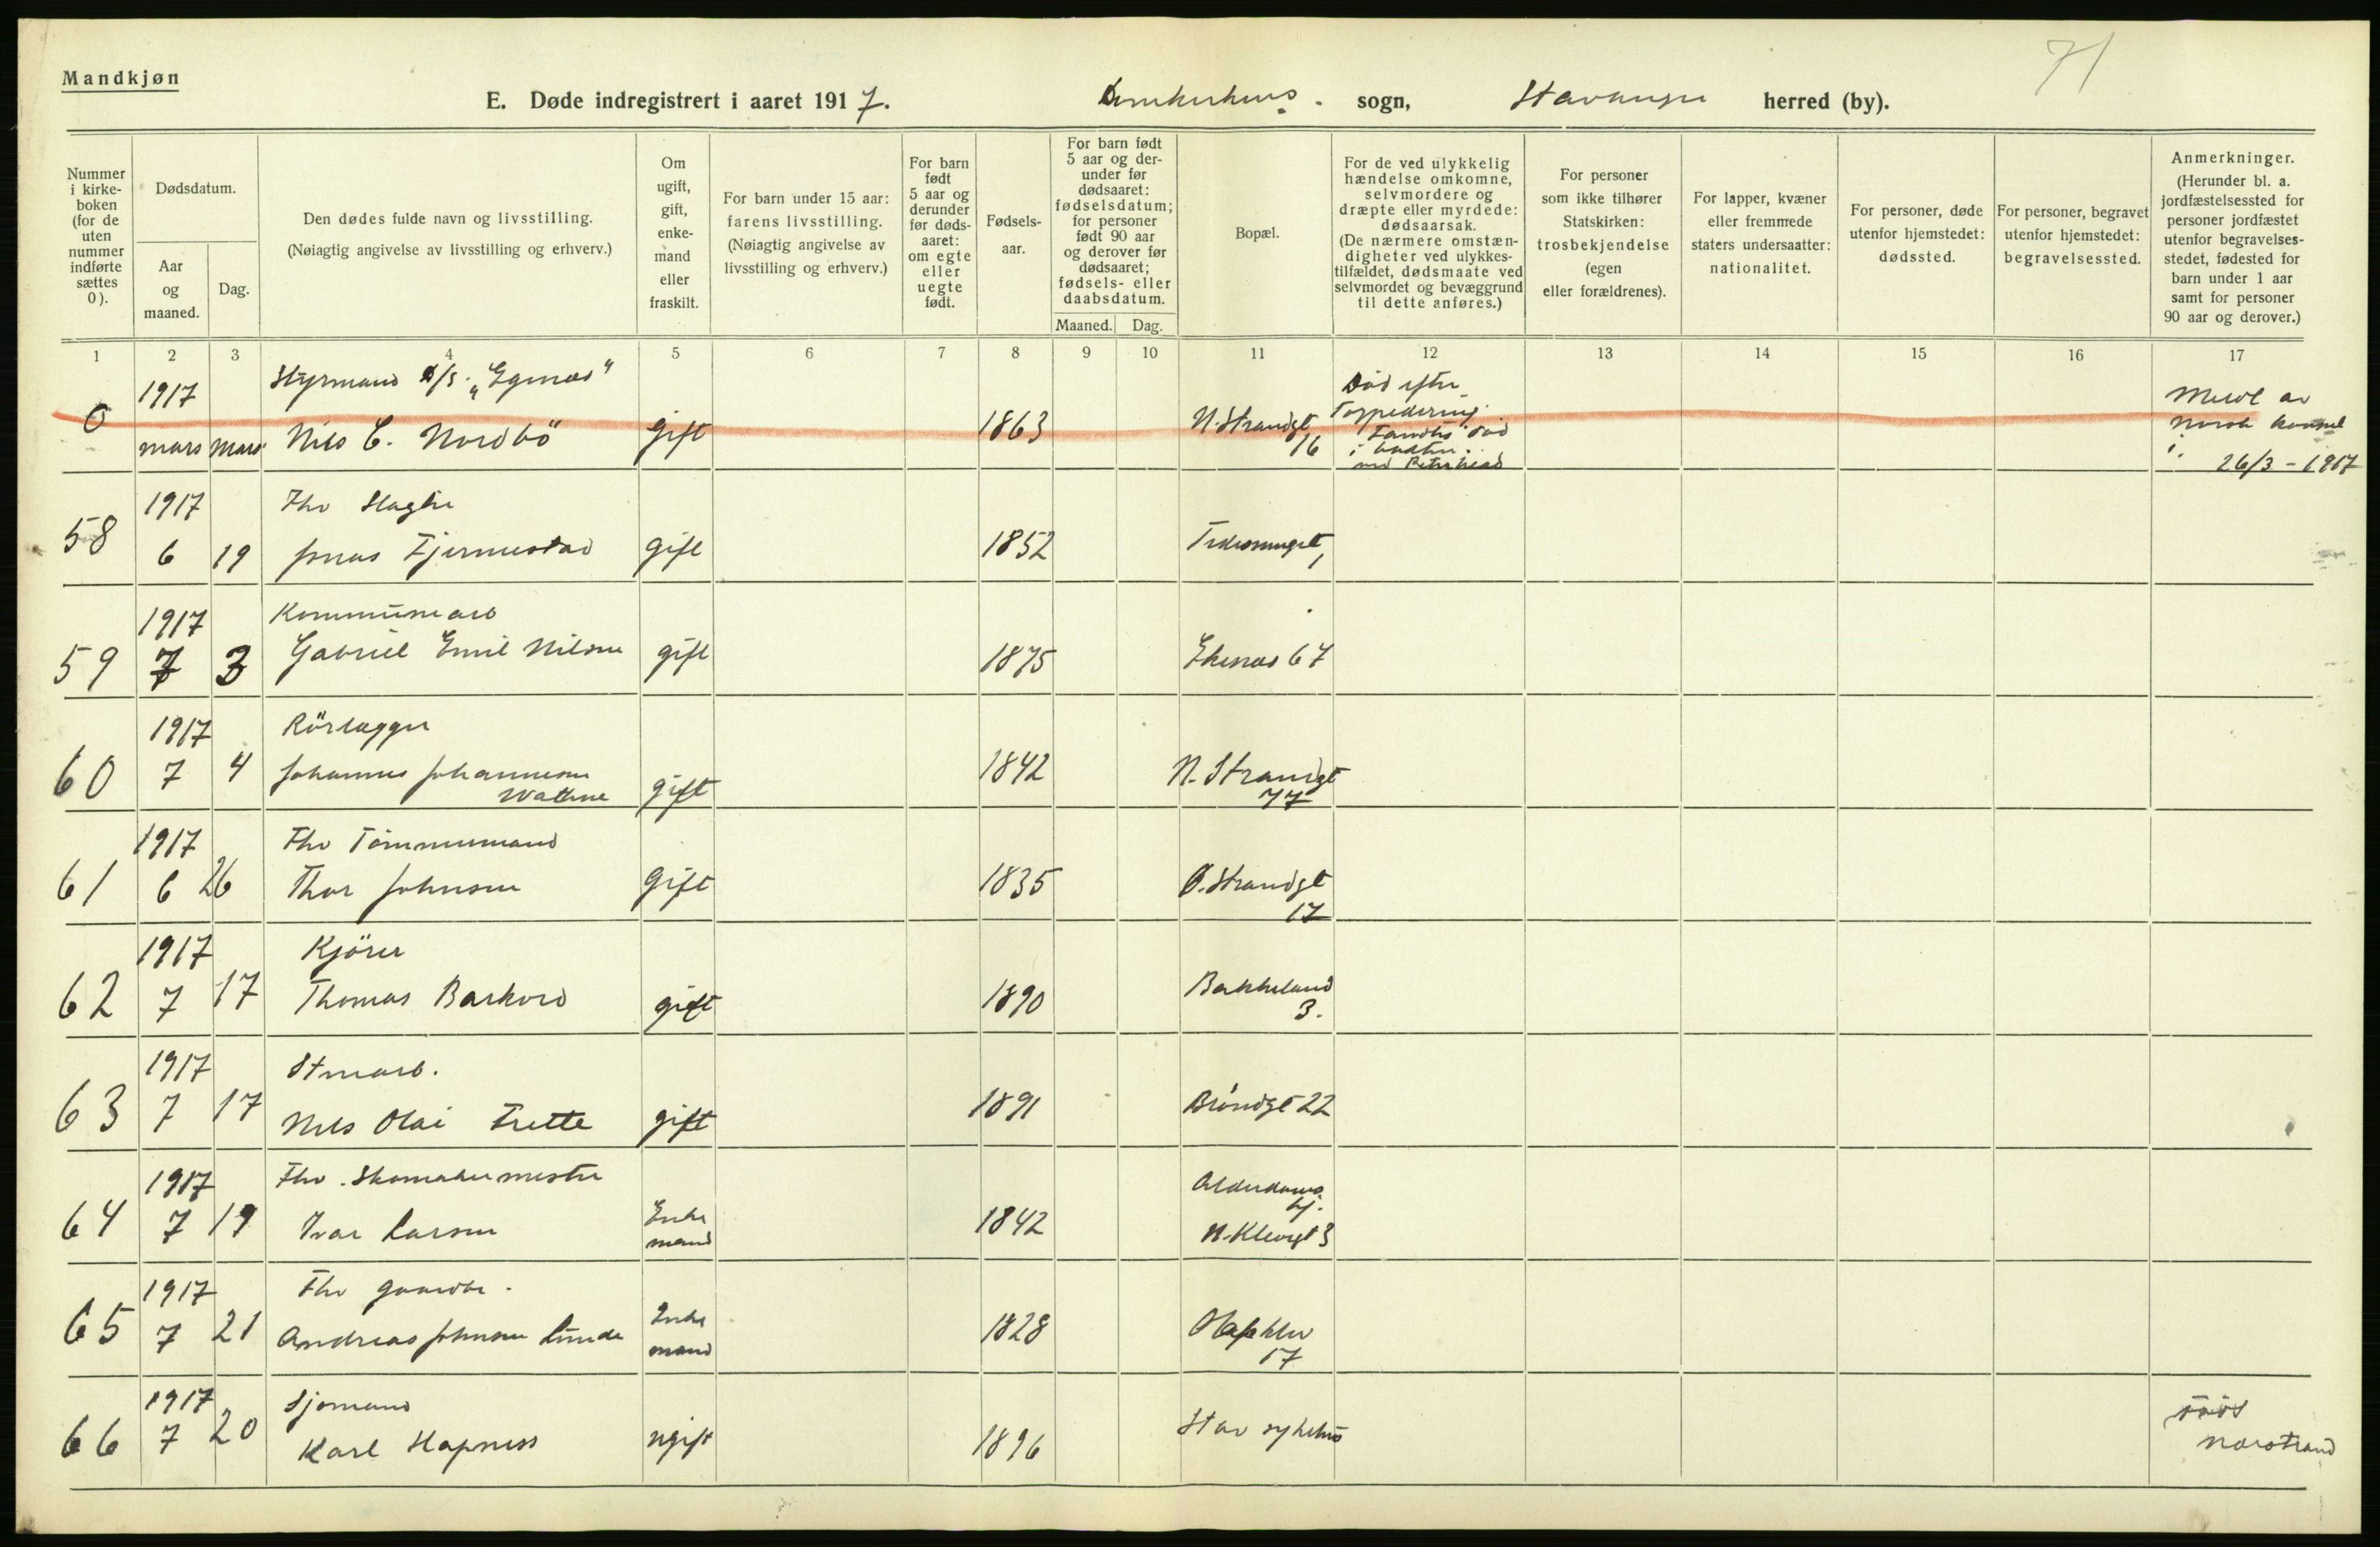 71
Mandkjøn
E. Døde indregistrert i aaret 1917. Domkirkens sogn, Stavanger herred (by).
Nummer i kirkeboken (for de uten nummer indførte sættes 0).
Dødsdatum.
Aar og maaned.
Dag.
Den dødes fulde navn og livsstilling.
(Nøiagtig angivelse av livsstilling og erhverv.)
Om ugift, gift, enkemand eller fraskilt.
For barn under 15 aar: farens livsstilling.
(Nøiagtig angivelse av livsstilling og erhverv.)
For barn født 5 aar og derunder før dødsaaret: om egte eller uegte født.
Fødselsaar.
For barn født 5 aar og derunder før dødsaaret: fødselsdatum; for personer født 90 aar og derover før dødsaaret; fødsels- eller daabsdatum.
Maaned. Dag.
Bopæl.
For de ved ulykkelig hændelse omkomne, selvmordere og dræpte eller myrdede: dødsaarsak.
(De nærmere omstændigheter ved ulykkestilfældet, dødsmaate ved selvmordet og bevæggrund til dette anføres.)
For personer som ikke tilhører Statskirken: trosbekjendelse (egen eller forældrenes).
For lapper, kvæner eller fremmede staters undersaatter: nationalitet.
For personer, døde utenfor hjemstedet: dødssted.
For personer, begravet utenfor hjemstedet: begravelsessted.
Anmerkninger.
(Herunder bl. a. jordfæstelsessted for personer jordfæstet utenfor begravelsesstedet, fødested for barn under 1 aar samt for personer 90 aar og derover.)
1 2 3 4 5 6 7 8 9 10 11 12 13 14 15 16 17
1917 Styrmand D/S. „Egenæs" Død efter Meld av
0 mars mars Nils C. Nordbö gift 1863 N. Strandgt 16 Torpedering. Fandtes død i baaten ved Peterhead norsk konsul i. 26/3-1917
1917 Fhv Slagter
58 6 19 Jonas Fjermestad gift 1852
1917 Kommunearb
59 7 3 Gabriel Emil Nilsen gift 1875 Ekenæs 67
1917 Rörlægger
60 7 4 Johannes Johannesen Wathne gift 1842 N. Strandgt 77
1917 Fhv Tömmermand
61 6 26 Thor Johnsen gift 1835 Ø. Strandgt 17
1917 Kjörer
62 7 17 Thomas Barkved gift 1890 Bakkeland 3.
1917 Stenarb.
63 7 17 Nils Olai Trette gift 1891 Bröndgt 22
1917 Fhv. Skomakermester Alderdoms
64 7 19 Ivar Larsen Enke mand 1842 hj. N. Klevgt 3
1917 Fhv gaardbr.
65 7 21 Andreas Johnsen Lunde Enke mand 1828 Olafsklev 17
1917 Sjömand
66 7 20 Karl Hapness ugift 1896 Stav sykehus Nærstrand